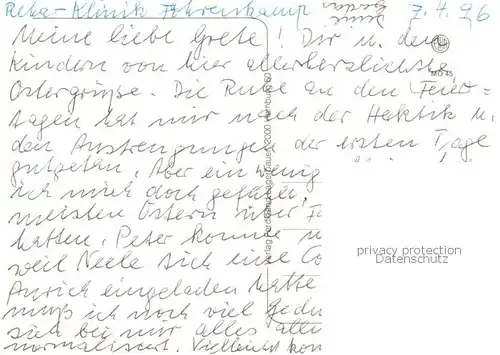 Reha-Klinik Föhrenkamp 7.4.96
Meine liebe Grete! Dir u. den
Kindern von hier allerherzlichste
Ostergrüße. Die Ruhe an den Feier-
tagen hat mir nach der Hektik u.
den Anstrengungen der ersten Tage
gutgetan. Aber ein wenig
ich mich doch gefühlt,
meisten Ostern über
hatten. Peter konnte
weil Neele sich eine
Aurich eingeladen hatte
muß ich noch viel Gedu
sich bei mir alles
normalisiert. Vielleicht kon
MO 45
privacy protection
Datenschutz